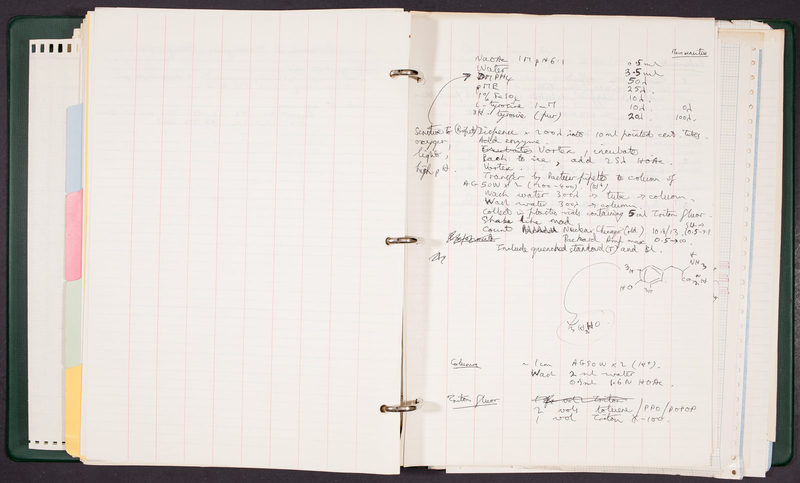 More sensitive
NaOAc 1M pH 6.1 0.5 ml
Water 3.5 ml
DMPH4 50λ
βME 25λ
10λ.
L-tyrosine 1mM 10λ 0λ
3H tyrosine (pur) 20λ 100λ.
Sensitive to oxygen, light, high pH.
Dispense × 200λ into 10ml pointed cent. tubes.
Add enzyme.
Vortex, incubate
Back to ice, add 25λ HOAc.
Vortex.
Transfer by Pasteur pipette to column of
AG50W × 2 (200-400) (H+)
Wash water 300λ → tube → column.
Wash water 300λ → column.
Collect in plastic vials containing 5 ml Triton fluor.
Shake like mad.
Count Nuclear Chicago (old) 10.4/13
Packard 0.5 → ∞
Include quenched standard (T) and Bl.
3H
HO
3H
+
NH3
3HHO
Column ~ 1 cm AG50W × 2 (H+).
Wash 2 ml water
0.5 ml 1.6 N HOAc.
Triton fluor
2 vols toluene / PPO / POPOP
1 vol Triton X-100.